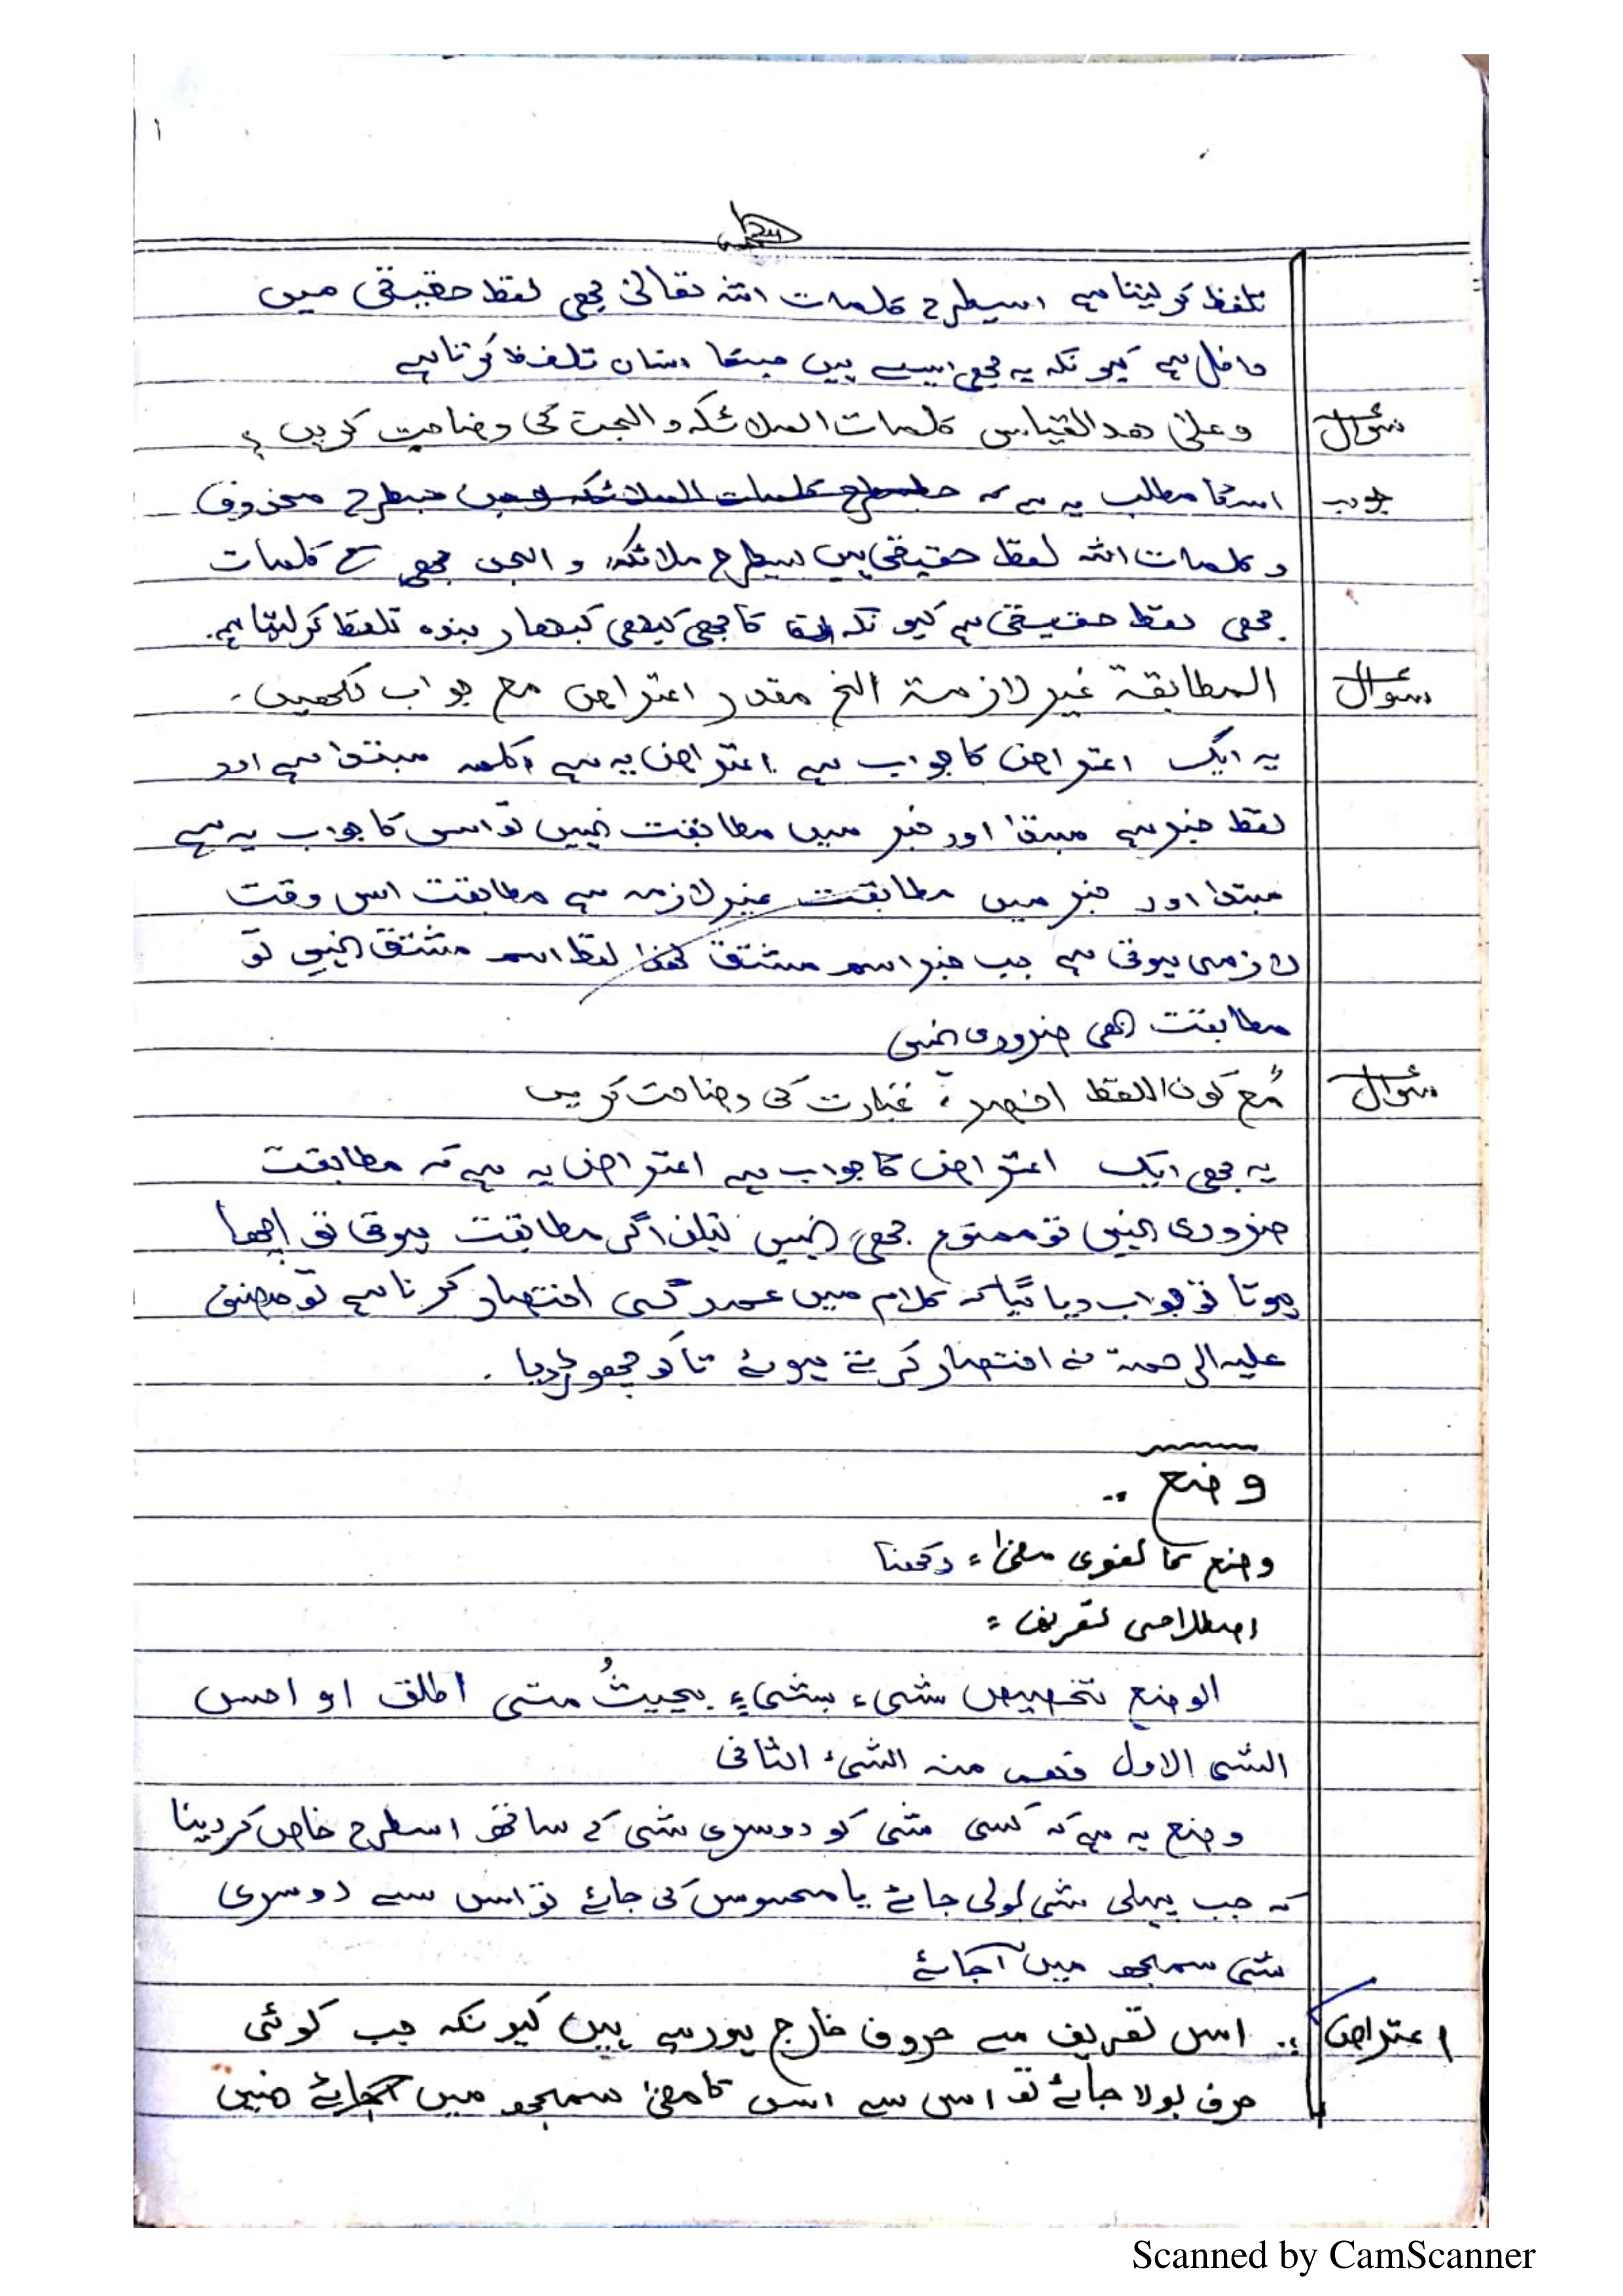 ۱
تلفظ کر لیتا ہے اسیطرح کلمات اللہ تعالیٰ بھی لفظ حقیقی میں
داخل ہے کیونکہ یہ بھی ایسے ہیں جنکا انسان تلفظ کرتا ہے
سوال وعلیٰ ھذ القیاس کلمات الملائکہ و الجن کی وضاحت کریں ؟
جواب اسکا مطلب یہ ہے کہ جسطرح کلمات الملائکہ جسطرح محذوف
و کلمات اللہ لفظ حقیقی ہیں اسیطرح ملائکہ و الجن بھی کے کلمات
بھی لفظ حقیقی ہے کیونکہ ان کا بھی کبھی کبھار بندہ تلفظ کر لیتا ہے.
سوال المطابقۃ غیر لازمۃ الخ مقدر اعتراض مع جواب لکھیں۔
یہ ایک اعتراض کا جواب ہے اعتراض یہ ہے الکلمہ مبتدا ہے اور
لفظ خبر ہے مبتدا اور خبر میں مطابقت نہیں تو اس کا جواب یہ ہے
مبتدا اور خبر میں مطابقت غیر لازمہ ہے مطابقت اس وقت
لازمی ہوتی ہے جب خبر اسم مشتق لھذا لفظ اسم مشتق نہیں تو
مطابقت بھی ضروری نہیں
سوال مع کون اللفظ اخصر، عبارت کی وضاحت کریں
یہ بھی ایک اعتراض کا جواب ہے اعتراض یہ ہے کہ مطابقت
ضروری نہیں تو ممنوع بھی نہیں لیکن اگر مطابقت ہوتی تو اچھا
ہوتا تو جواب دیا گیا کہ کلام میں اختصار کرنا ہے تو مصنف
علیہ الرحمۃ نے اختصار کرتے ہوئے تا کو چھوڑ دیا .
وضع ..
وضع کا لغوی معنیٰ : رکھنا
اصطلاحی تعریف :
الوضع تخصیص شیء بشیءٍ بحیثُ متی اطلق او احس
الشی الاول فھم منہ الشیء الثانی
وضع یہ ہے کہ کسی شی کو دوسری شی کے ساتھ اسطرح خاص کر دینا
کہ جب پہلی شی بولی جائے یا محسوس کی جائے تو اس سے دوسری
شی سمجھ میں آجائے
اعتراض :. اس تعریف سے حروف خارج ہورہے ہیں کیونکہ جب کوئی
حرف بولا جائے تو اس سے اس کا معنیٰ سمجھ میں آجائے نہیں
Scanned by CamScanner